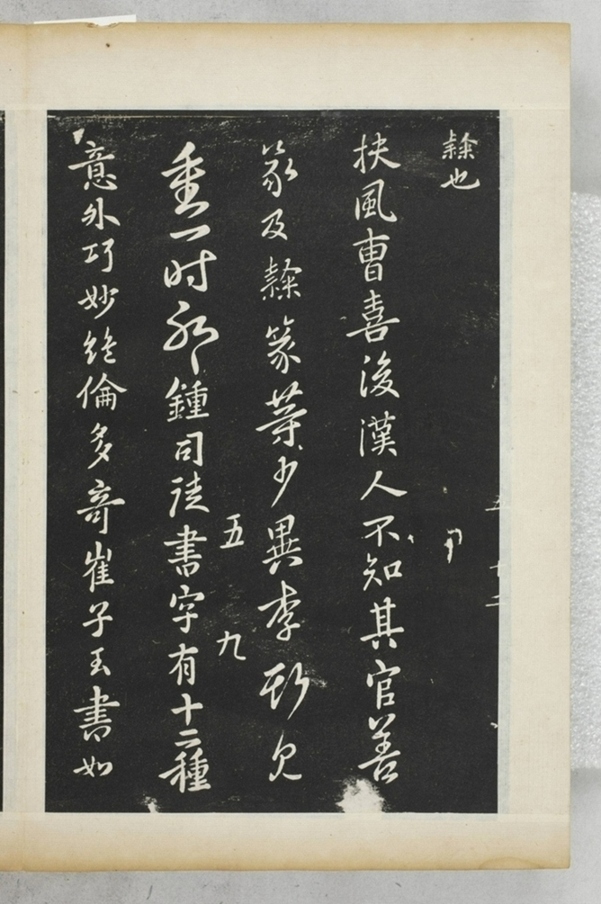 隸也
扶風曹喜後漢人不知其官善
篆及隸篆少異李斯見
五九
重一时耶鍾司徒書字有十二種
意外巧妙絕倫多奇崔子玉書如